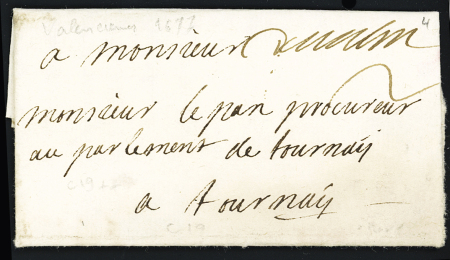 Valenciennes 1697
4
a monsieur
monsieur le pan procureur
au parlement de tournaÿ
a tournaÿ